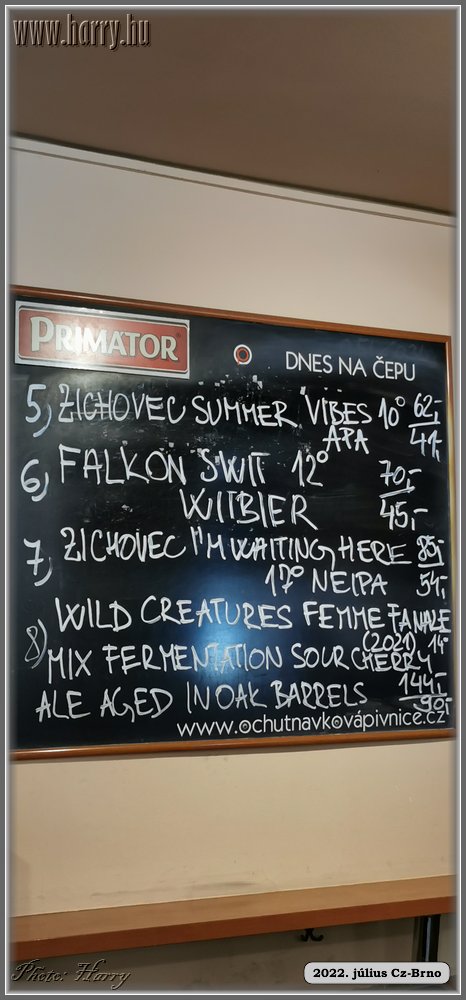 www.harry.hu
PRIMÁTOR
DNES NA ČEPU
5) ZICHOVEC SUMMER VIBES 10° 62,-
APA 41,-
6) FALKON SWIT 12° 70,-
WITBIER 45,-
7) ZICHOVEC I'M WAITING HERE 85,-
17° NEIPA 54,-
WILD CREATURES FEMME FANALE
8) (2021) 14°
MIX FERMENTATION SOUR CHERRY
ALE AGED IN OAK BARRELS 144,-
90,-
www.ochutnavkovápivnice.cz
Photo: Harry
2022. július Cz-Brno